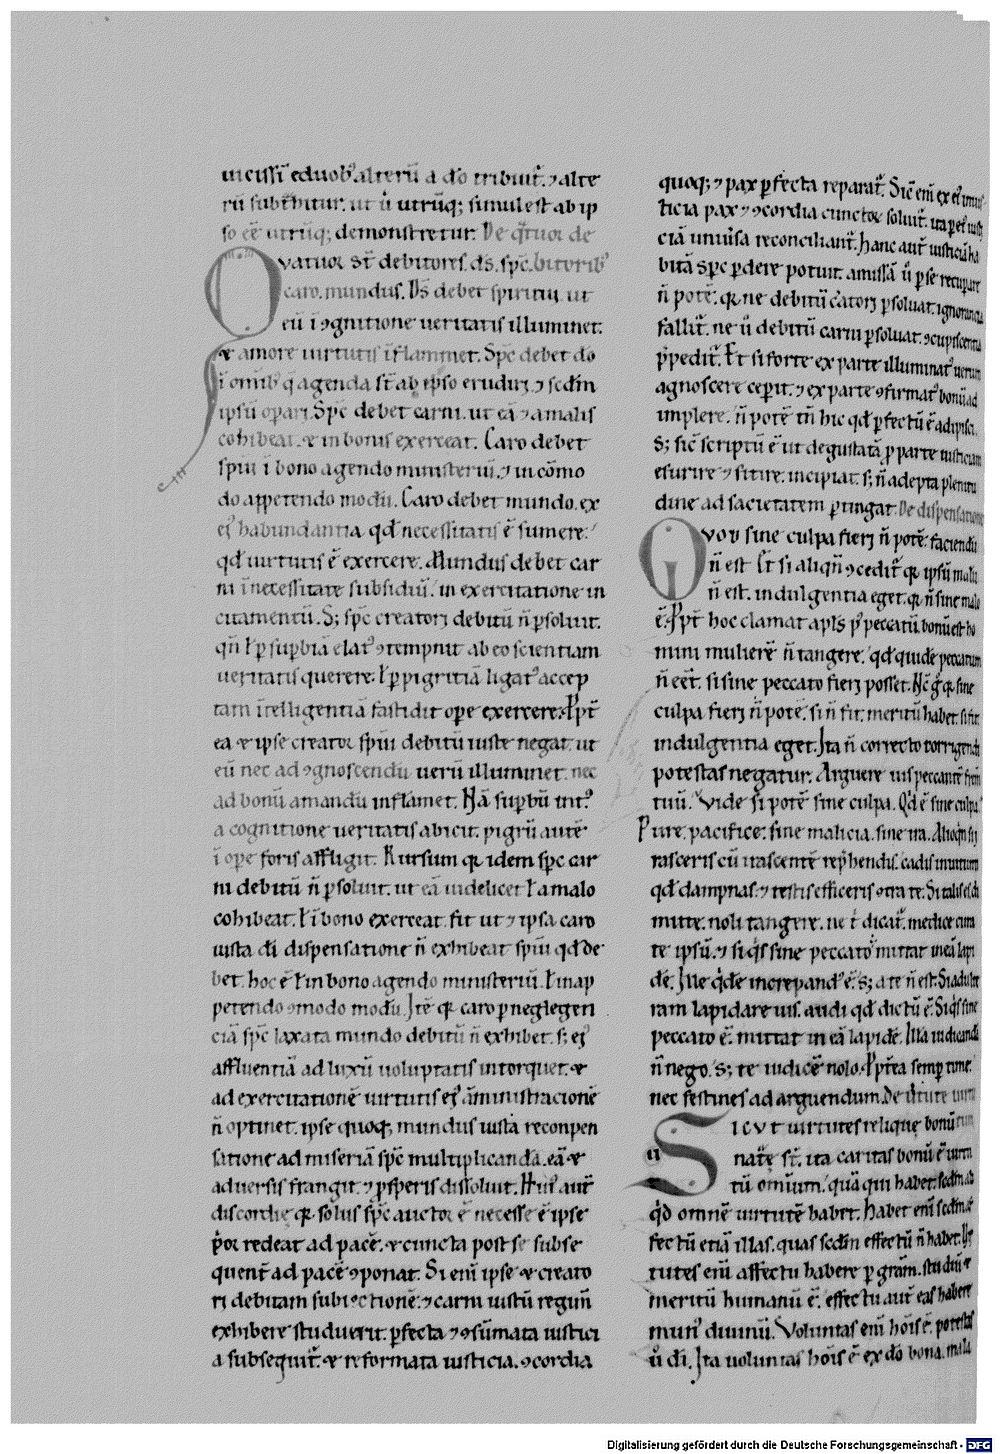 uicissī eduob' alterū a do tribuit. ⁊ alte
rū subt̄hitur. ut ů utrūq; simul est ab ip
so eē utrūq; demonstretur. De q̄tuor de
Qvatuor st̄ debitores. ds. spc̄. bitorib'
caro. mundus. Ds̄ debet spiritui. ut
eū ī ꝯgnitione ueritatis illuminet.
& amore uirtutis īflammet. Spc̄ debet dō
ī omīb' q̄ agenda st̄ ab ipso erudiri ⁊ scdm̄
ipsū opari. Spc̄ debet carni. ut eā ⁊ a malis
cohibeat. & in bonis exerceat. Caro debet
spiui ī bono agendo ministeriū. ⁊ in cōmo
do appetendo modū. Caro debet mundo. ex
ei' habundantia qd̄ necessitatis ē sumere.
qd̄ uirtutis ē exercere. Mundus debet car
ni ī necessitate subsidiū. in exercitatione in
citamentū. S; spc̄ creatori debitū n̄ ꝑsoluit.
qn̄ ł ꝑ suꝑbiā elat' ꝯtempnit ab eo scientiam
ueritatis querere. ł ꝑ pigritiā ligat' accep
tam ītelligentiā fastidit opē exercere. Ꝓpt̄
ea & ipse creator spiui debitū iuste negat. ut
eū nec ad ꝯgnoscendū uerū illuminet. nec
ad bonū amandū inflamet. Nā suꝑbū int'
a cognitione ueritatis abicit. pigrū autē
ī opē foris affligit. Rursum q; idem spc̄ car
ni debitū n̄ ꝑsoluit. ut eā uidelicet ł a malo
cohibeat. ł ī bono exerceat. fit ut ⁊ ipsa caro
iusta di dispensatione n̄ exhibeat spiui qd̄ de
bet. hoc ē ł in bono agendo ministeriū. ł in ap
petendo ꝯmodo modū. Itē q; caro ꝑ neglegen
ciā spc̄ laxata mundo debitū n̄ exhibet. s; ei'
affluentiā ad luxū uoluptatis intorquet. &
ad exercitationē uirtutis ei' āministracionē
n̄ optinet. ipse quoq; mundus iusta reconpen
satione ad miseriā spc̄ multiplicandā. eā &
aduersis frangit. ⁊ ꝓsperis dissoluit. Hui' aut̄
discordie q; solus spc̄ auctor ē necesse ē ipse
p̄or redeat ad pacē. & cuncta post se subse
quent̄ ad pacē ꝯponat. Si eni ipse & creato
ri debitam subiectionē. ⁊ carni iustū regim̄
exhibere studuerit. ꝑfecta ⁊ ꝯsūmata iustici
a subsequit̄. & reformata iusticia. ꝯcordia
quoq; ⁊ pax ꝑfecta reparat̄. Sic̄ eni ex ei'
ticia pax ⁊ ꝯcordia cunctor soluit̄. ita
ciā uniūsa reconciliant̄. Hanc aut̄ iusticiā ha
bitā spc̄ ꝑdere potuit. amissā ů ꝑ se recuꝑare
n̄ potē. q; ne debitū cātori ꝑsoluat. ignorancia
fallit̄. ne ů debitū carni ꝑsoluat. ꝯcupiscentia
p̄pedit̄. Et si forte ex parte illuminat' uerum
agnoscere ceperit. ⁊ ex parte ꝯfirmat' bonū ad
implere. n̄ potē tn̄ hic qd̄ ꝑfectū ē adipisci.
S; sic̄ scriptū ē ut degustatā ꝑ parte iusticiam
esurire ⁊ sitire. incipiat. s; n̄ adepta plenitu
dine ad sacietatem ꝑtingat. De dispensatione
Qvod sine culpa fieri n̄ potē. faciendū
n̄ est. Et si aliqn̄ ꝯcedit̄ q; ipsū malū
n̄ est. indulgentia eget. q; n̄ sine malo
ē. Ꝓpt̄ hoc clamat apls p' peccatū. bonū est ho
mini mulierē n̄ tangere. qd̄ quidē peccatum
n̄ eēt. si sine peccato fieri posset. Hc̄ ḡ q; sine
culpa fieri n̄ potē. si n̄ fit. meritū habet. si fit
indulgentia eget. Ita n̄ correcto corrigendi
potestas negatur. Arguere uis peccantē frem
tuū. Vide si potē sine culpa. Qd̄ ē sine culpa?
Pure. pacifice. sine malicia. sine ira. Alioqin si
rasceris cū irascentē rep̄hendis. cadis inuitum
qd̄ dampnas. ⁊ testis efficeris ꝯtra te. Si talis es di
mitte. noli tangere. ne t̄ dicat̄. medice cura
te ipsū. ⁊ si q̄s sine peccato mittat in eū lapi
dē. Ille q̄dē increpand' ē. s; a te n̄ est. Si adulte
ram lapidare uis. audi qd̄ dictū ē. Siq̄s sine
peccato ē. mittat in eā lapidē. Illā iudicandā
n̄ nego. s; te iudicē nolo. Ꝓptea semꝑ time.
nec festines ad arguendum. De uirtute
Sicvt uirtutes relique bonū
nate st̄. ita caritas bonū ē uirtu
tū omium. quā qui habet. scdm
qd̄ omnē uirtutē habet. Habet eni scdm
fectū etiā illas. quas scdm effectū n̄ habet.
tutes eni affectu habere ꝑ grām. studiū &
meritū humanū ē. effectu aut̄ eas habere
mun' diuinū. Voluntas eni hoīs ē. potestas
ů di. Ita uoluntas hoīs ē ex dō bona. mala
Digitalisierung gefördert durch die Deutsche Forschungsgemeinschaft - DFG